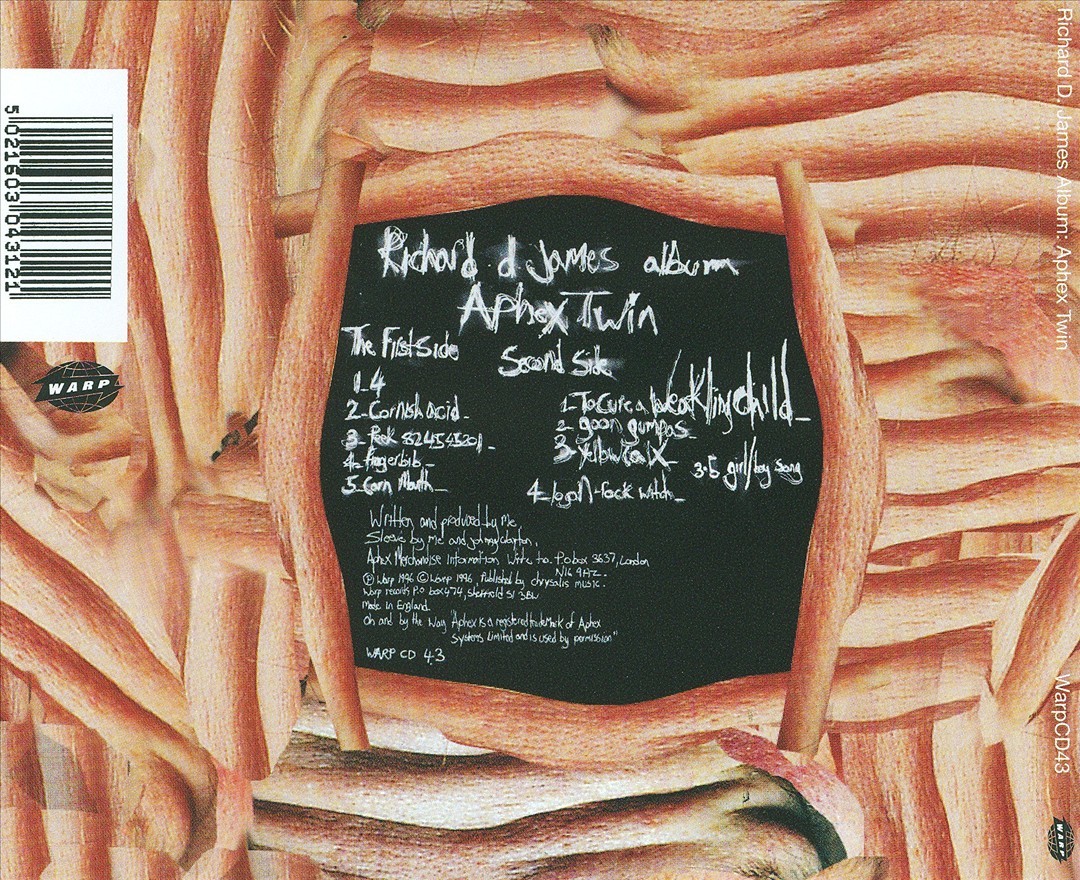 Richard d James album
Aphex Twin
The First Side
1_4
2_Cornish acid_
3_Peek 82454520l_
4_fingerbib_
5_Corn Mouth_
Second Side
1_To Cure a weakling child_
2_goon gumpas_
3_yellow calx_
3.5 girl/boy song
4_logon-rock witch_
Written and produced by Me
Sleeve by me and johnny clayton.
Aphex Merchandise Information Write to. P.o box 3637, London
N16 9HZ.
Ⓟ Warp 1996 © Warp 1996, Published by chrysalis music.
Warp records P.O box 474, Sheffield S1 3BW
Made in England.
Oh and by the way "Aphex is a registered trademark of Aphex
Systems Limited and is used by permission"
WARP CD 43
5 021603 043121
WARP
Richard D. James Album: Aphex Twin
WarpCD43
WARP